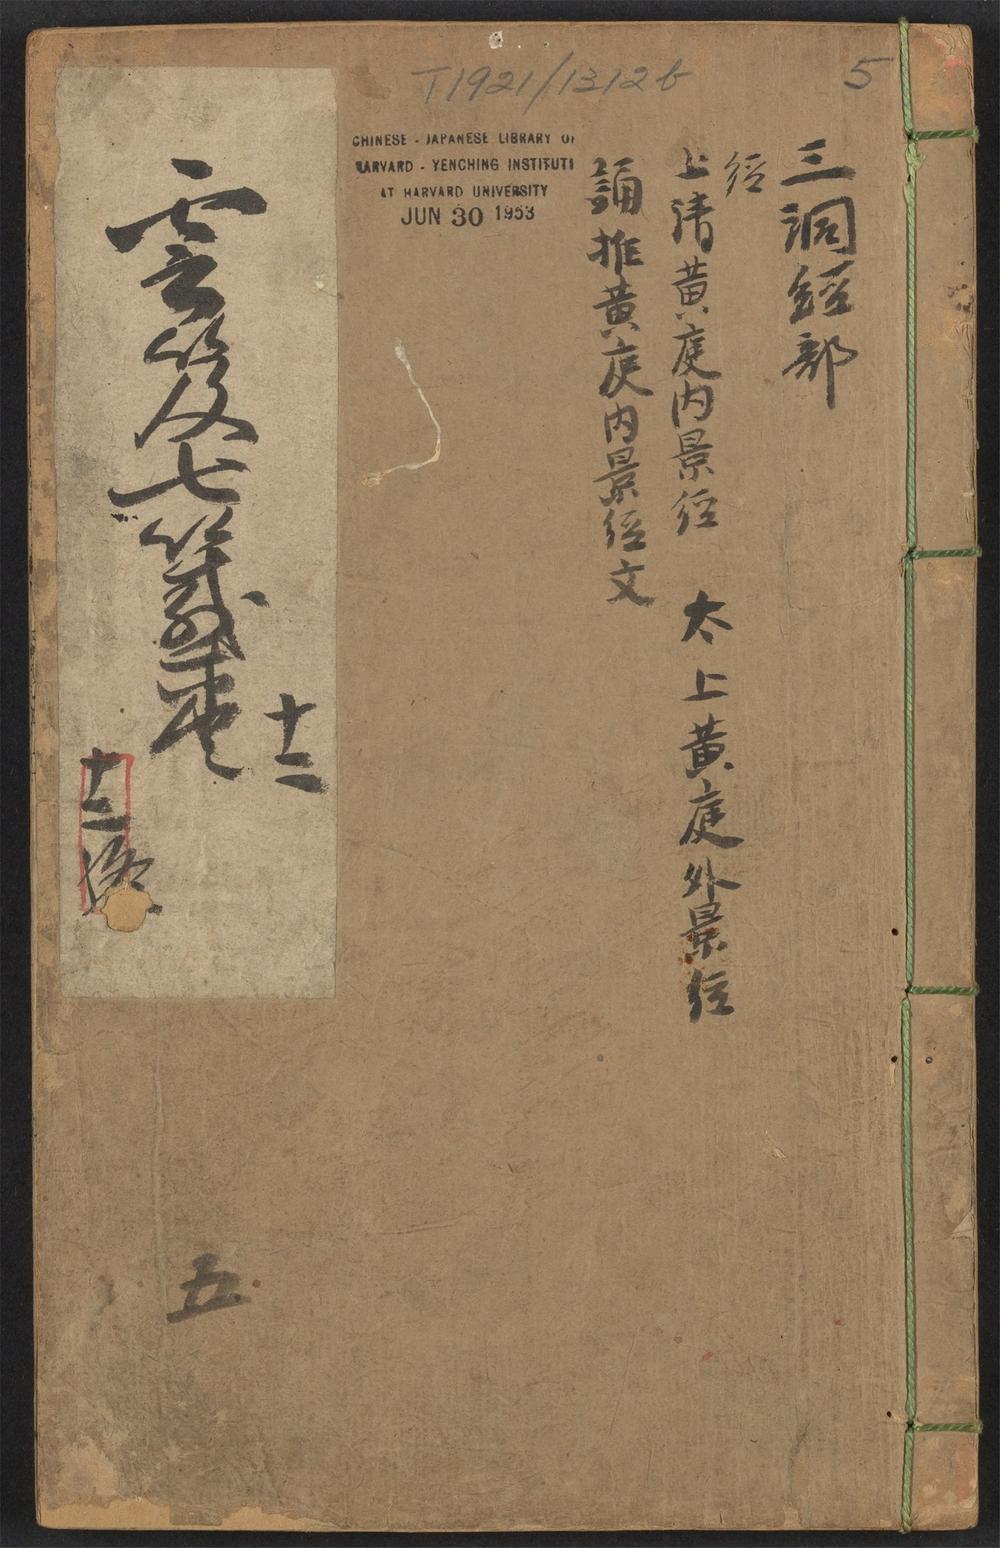 T1921/1312b
5
CHINESE - JAPANESE LIBRARY OF
HARVARD - YENCHING INSTITUTE
AT HARVARD UNIVERSITY
JUN 30 1953
三洞經部
經
上清黃庭內景經 太上黃庭外景經
誦推黃庭內景經文
雲笈七籤卷
十二
十二
五